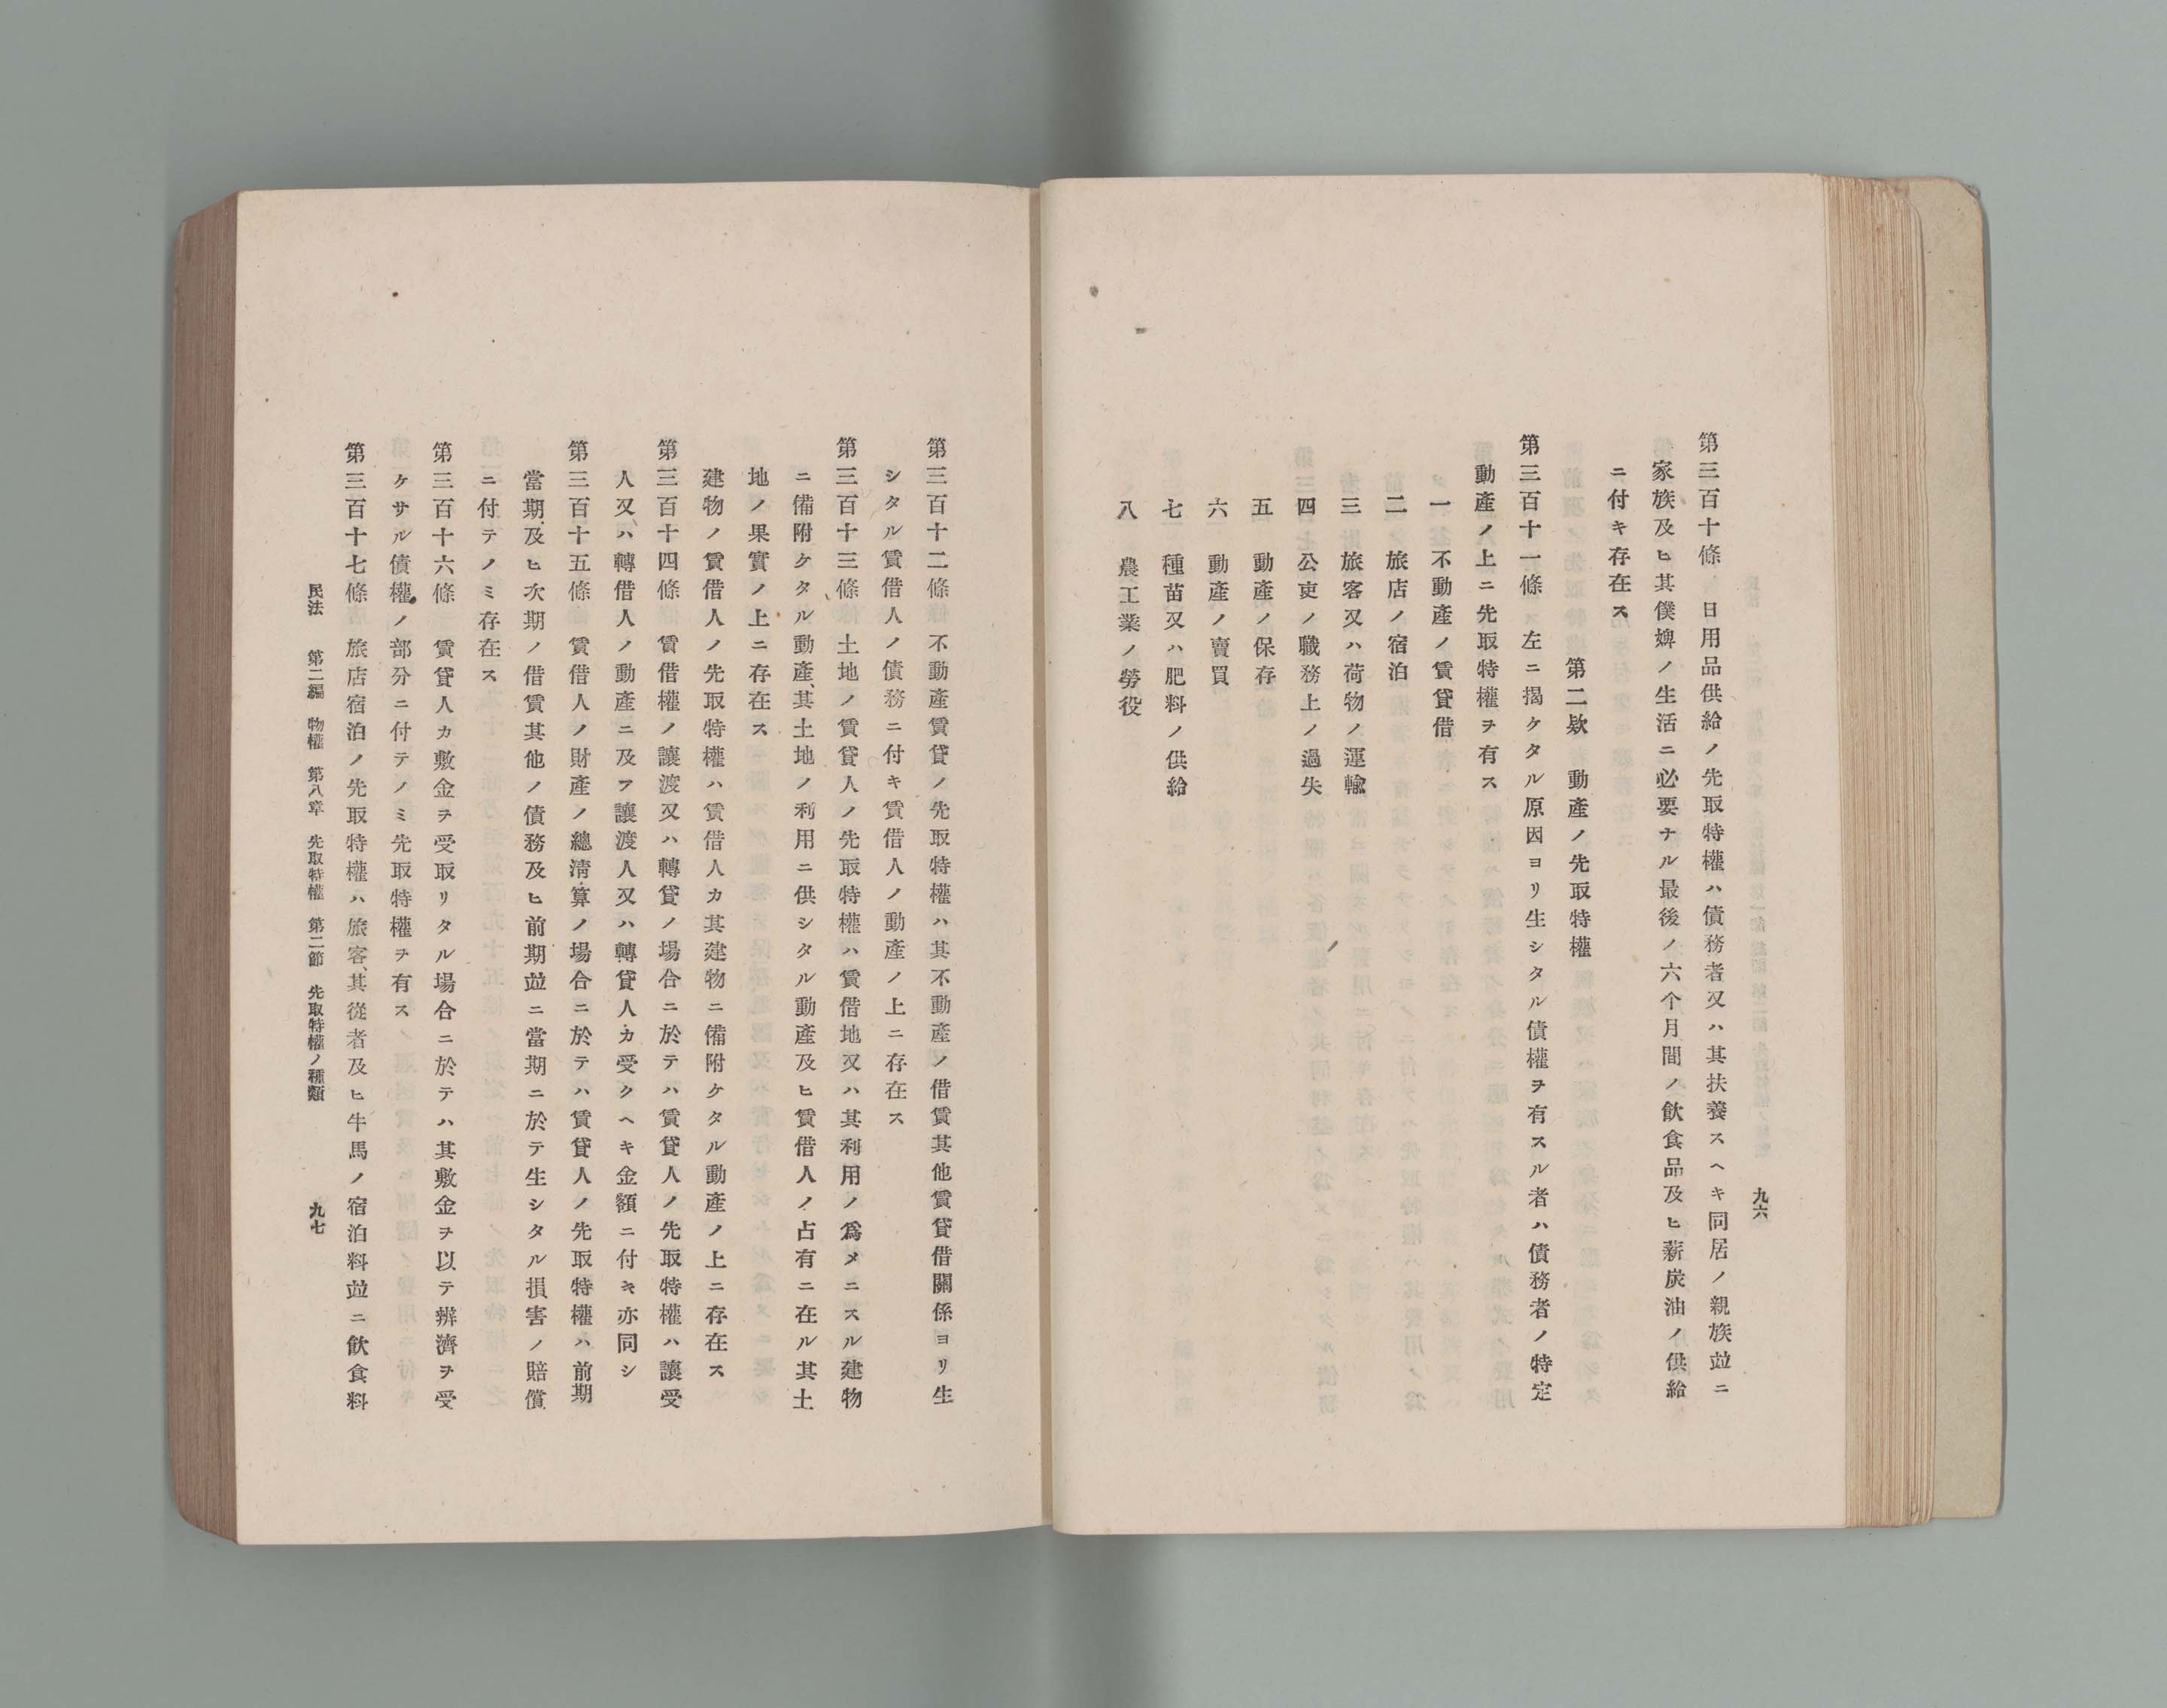 九六
第三百十條　日用品供給ノ先取特權ハ債務者又ハ其扶養スヘキ同居ノ親族竝ニ
家族及ヒ其僕婢ノ生活ニ必要ナル最後ノ六个月間ノ飲食品及ヒ薪炭油ノ供給
ニ付キ存在ス
第二欵　動產ノ先取特權
第三百十一條　左ニ揭ケタル原因ヨリ生シタル債權ヲ有スル者ハ債務者ノ特定
動產ノ上ニ先取特權ヲ有ス
一　不動產ノ賃貸借
二　旅店ノ宿泊
三　旅客又ハ荷物ノ運輸
四　公吏ノ職務上ノ過失
五　動產ノ保存
六　動產ノ賣買
七　種苗又ハ肥料ノ供給
八　農工業ノ勞役
第三百十二條　不動產賃貸ノ先取特權ハ其不動產ノ借賃其他賃貸借關係ヨリ生
シタル賃借人ノ債務ニ付キ賃借人ノ動產ノ上ニ存在ス
第三百十三條　土地ノ賃貸人ノ先取特權ハ賃借地又ハ其利用ノ爲メニスル建物
ニ備附ケタル動產、其土地ノ利用ニ供シタル動產及ヒ賃借人ノ占有ニ在ル其土
地ノ果實ノ上ニ存在ス
建物ノ賃貸人ノ先取特權ハ賃借人カ其建物ニ備附ケタル動產ノ上ニ存在ス
第三百十四條　賃借權ノ讓渡又ハ轉貸ノ場合ニ於テハ賃貸人ノ先取特權ハ讓受
人又ハ轉借人ノ動產ニ及フ讓渡人又ハ轉貸人カ受クヘキ金額ニ付キ亦同シ
第三百十五條　賃借人ノ財產ノ總淸算ノ場合ニ於テハ賃貸人ノ先取特權ハ前期
當期及ヒ次期ノ借賃其他ノ債務及ヒ前期竝ニ當期ニ於テ生シタル損害ノ賠償
ニ付テノミ存在ス
第三百十六條　賃貸人カ敷金ヲ受取リタル場合ニ於テハ其敷金ヲ以テ辨濟ヲ受
ケサル債權ノ部分ニ付テノミ先取特權ヲ有ス
第三百十七條　旅店宿泊ノ先取特權ハ旅客、其從者及ヒ牛馬ノ宿泊料竝ニ飲食料
民法　第二編　物權　第八章　先取特權　第二節　先取特權ノ種類　九七